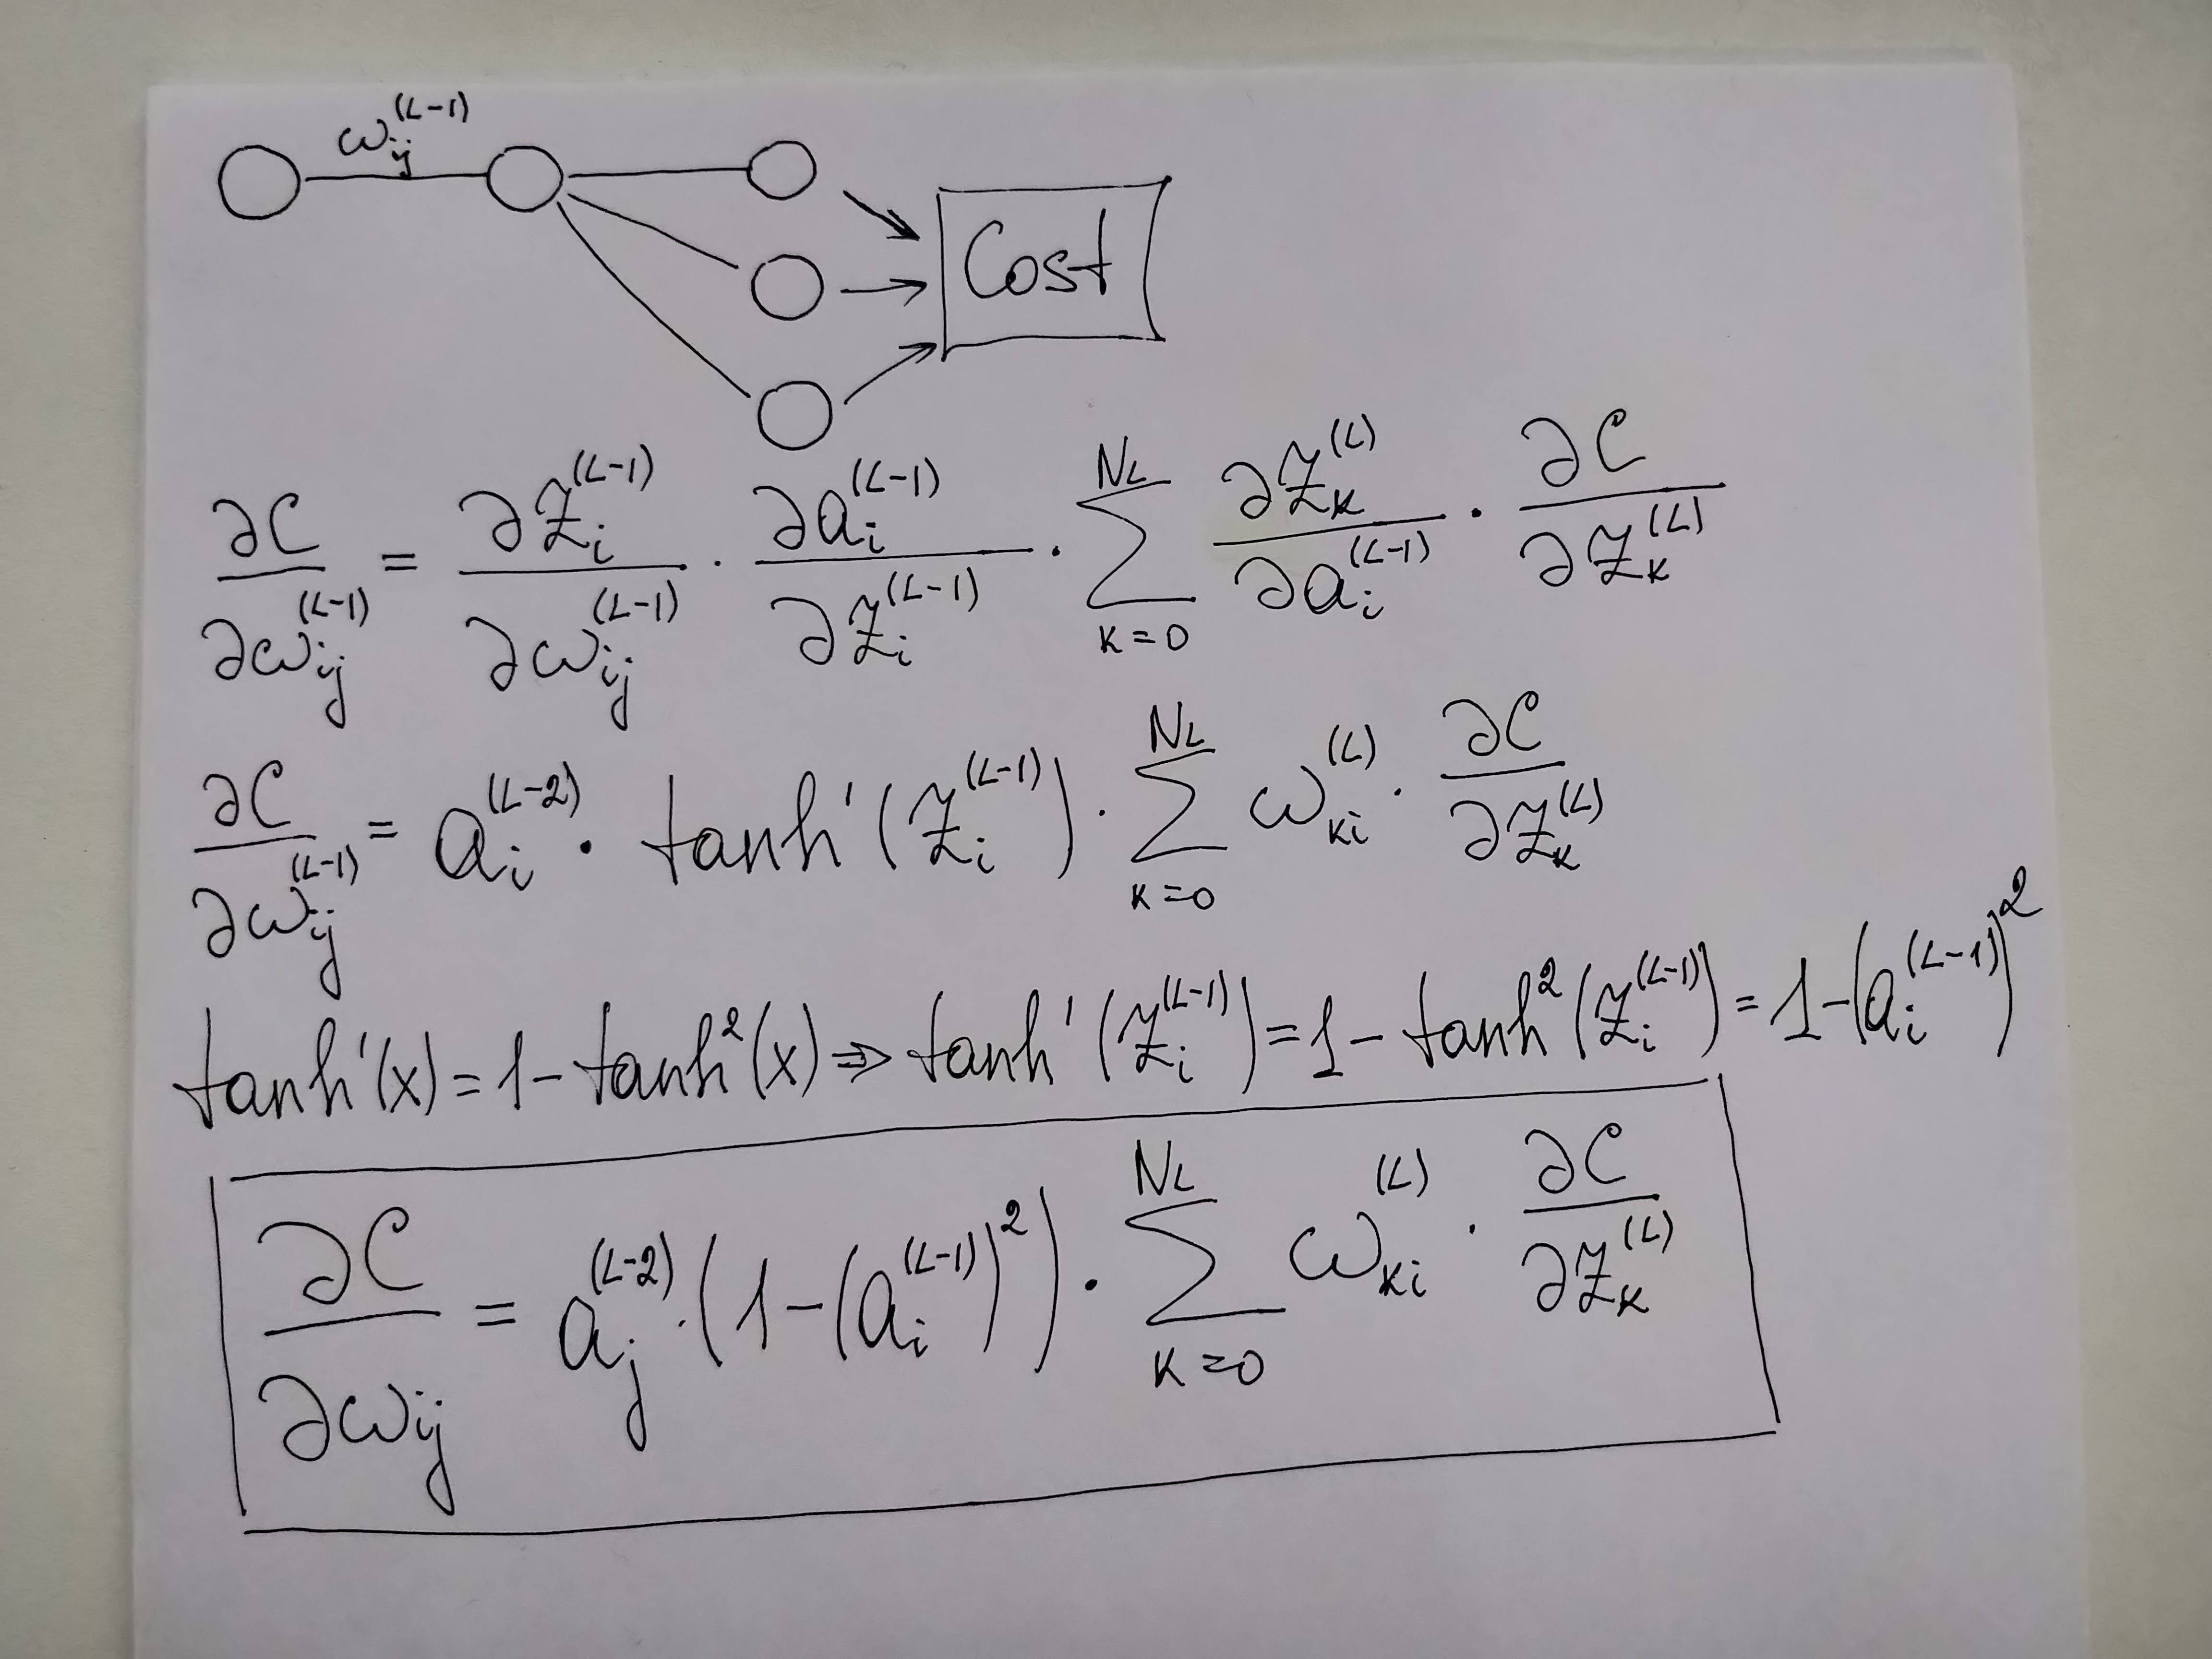 ω_ij^(L-1)
Cost
∂C/∂ω_ij^(L-1) = ∂z_i^(L-1)/∂ω_ij^(L-1) · ∂a_i^(L-1)/∂z_i^(L-1) · ∑_{k=0}^{N_L} ∂z_k^(L)/∂a_i^(L-1) · ∂C/∂z_k^(L)
∂C/∂ω_ij^(L-1) = a_i^(L-2) · tanh'(z_i^(L-1)) · ∑_{k=0}^{N_L} ω_ki^(L) · ∂C/∂z_k^(L)
tanh'(x) = 1 - tanh²(x) ⇒ tanh'(z_i^(L-1)) = 1 - tanh²(z_i^(L-1)) = 1 - (a_i^(L-1))²
∂C/∂ω_ij = a_j^(L-2) · (1 - (a_i^(L-1))²) · ∑_{k=0}^{N_L} ω_ki^(L) · ∂C/∂z_k^(L)